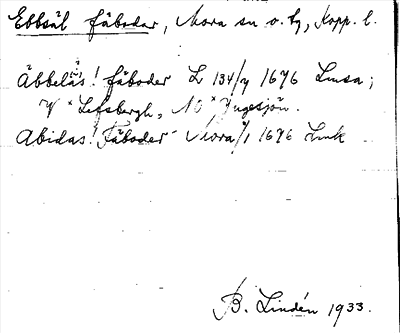 Ebbsäl fäbodar, Mora sn o. tg, Kopp. l.
Äbbelås! fäboder L 134/y 1676 Linsa;
V " Lefsbergh, NO " Ingesjön.
Abidas! Fäboder Mora/1 1676 Link
B. Lindén 1933.